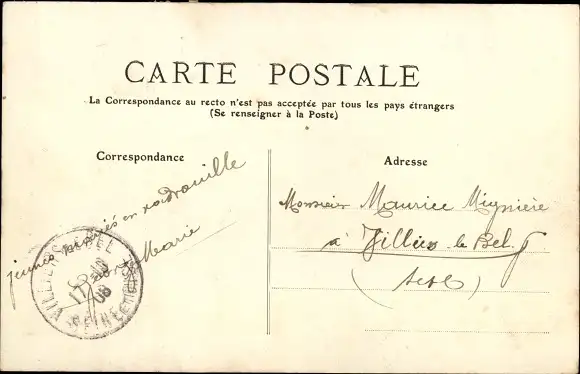 CARTE POSTALE
La Correspondance au recto n'est pas acceptée par tous les pays étrangers
(Se renseigner à la Poste)
Correspondance
jeunes mariés en
Marie
Adresse
Monsieur Maurice Mignière
à Villiers-le-Bel
VILLIERS-LE-BEL
08
SEINE-ET-OISE